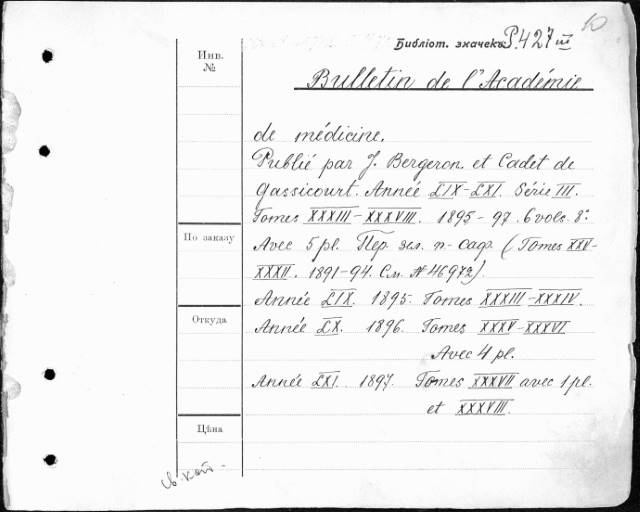 10
Библіот. значекъ P.427 III
Инв.
№
Bulletin de l'Académie
de médicine.
Publié par J. Bergeron et Cadet de
Gassicourt. Année LIX-LXI. Série III.
Tomes XXXIII-XXXVIII. 1895-97. 6 vols. 8°.
По заказу
Avec 5 pl. Пер. зел. п- сафр. (Tomes XXV-
XXXII. 1891-94. См. № 46972).
Année LIX. 1895. Tomes XXXIII-XXXIV.
Откуда
Année LX. 1896. Tomes XXXV-XXXVI
Avec 4 pl.
Année LXI. 1897. Tomes XXXVII avec 1 pl.
et XXXVIII.
Цѣна